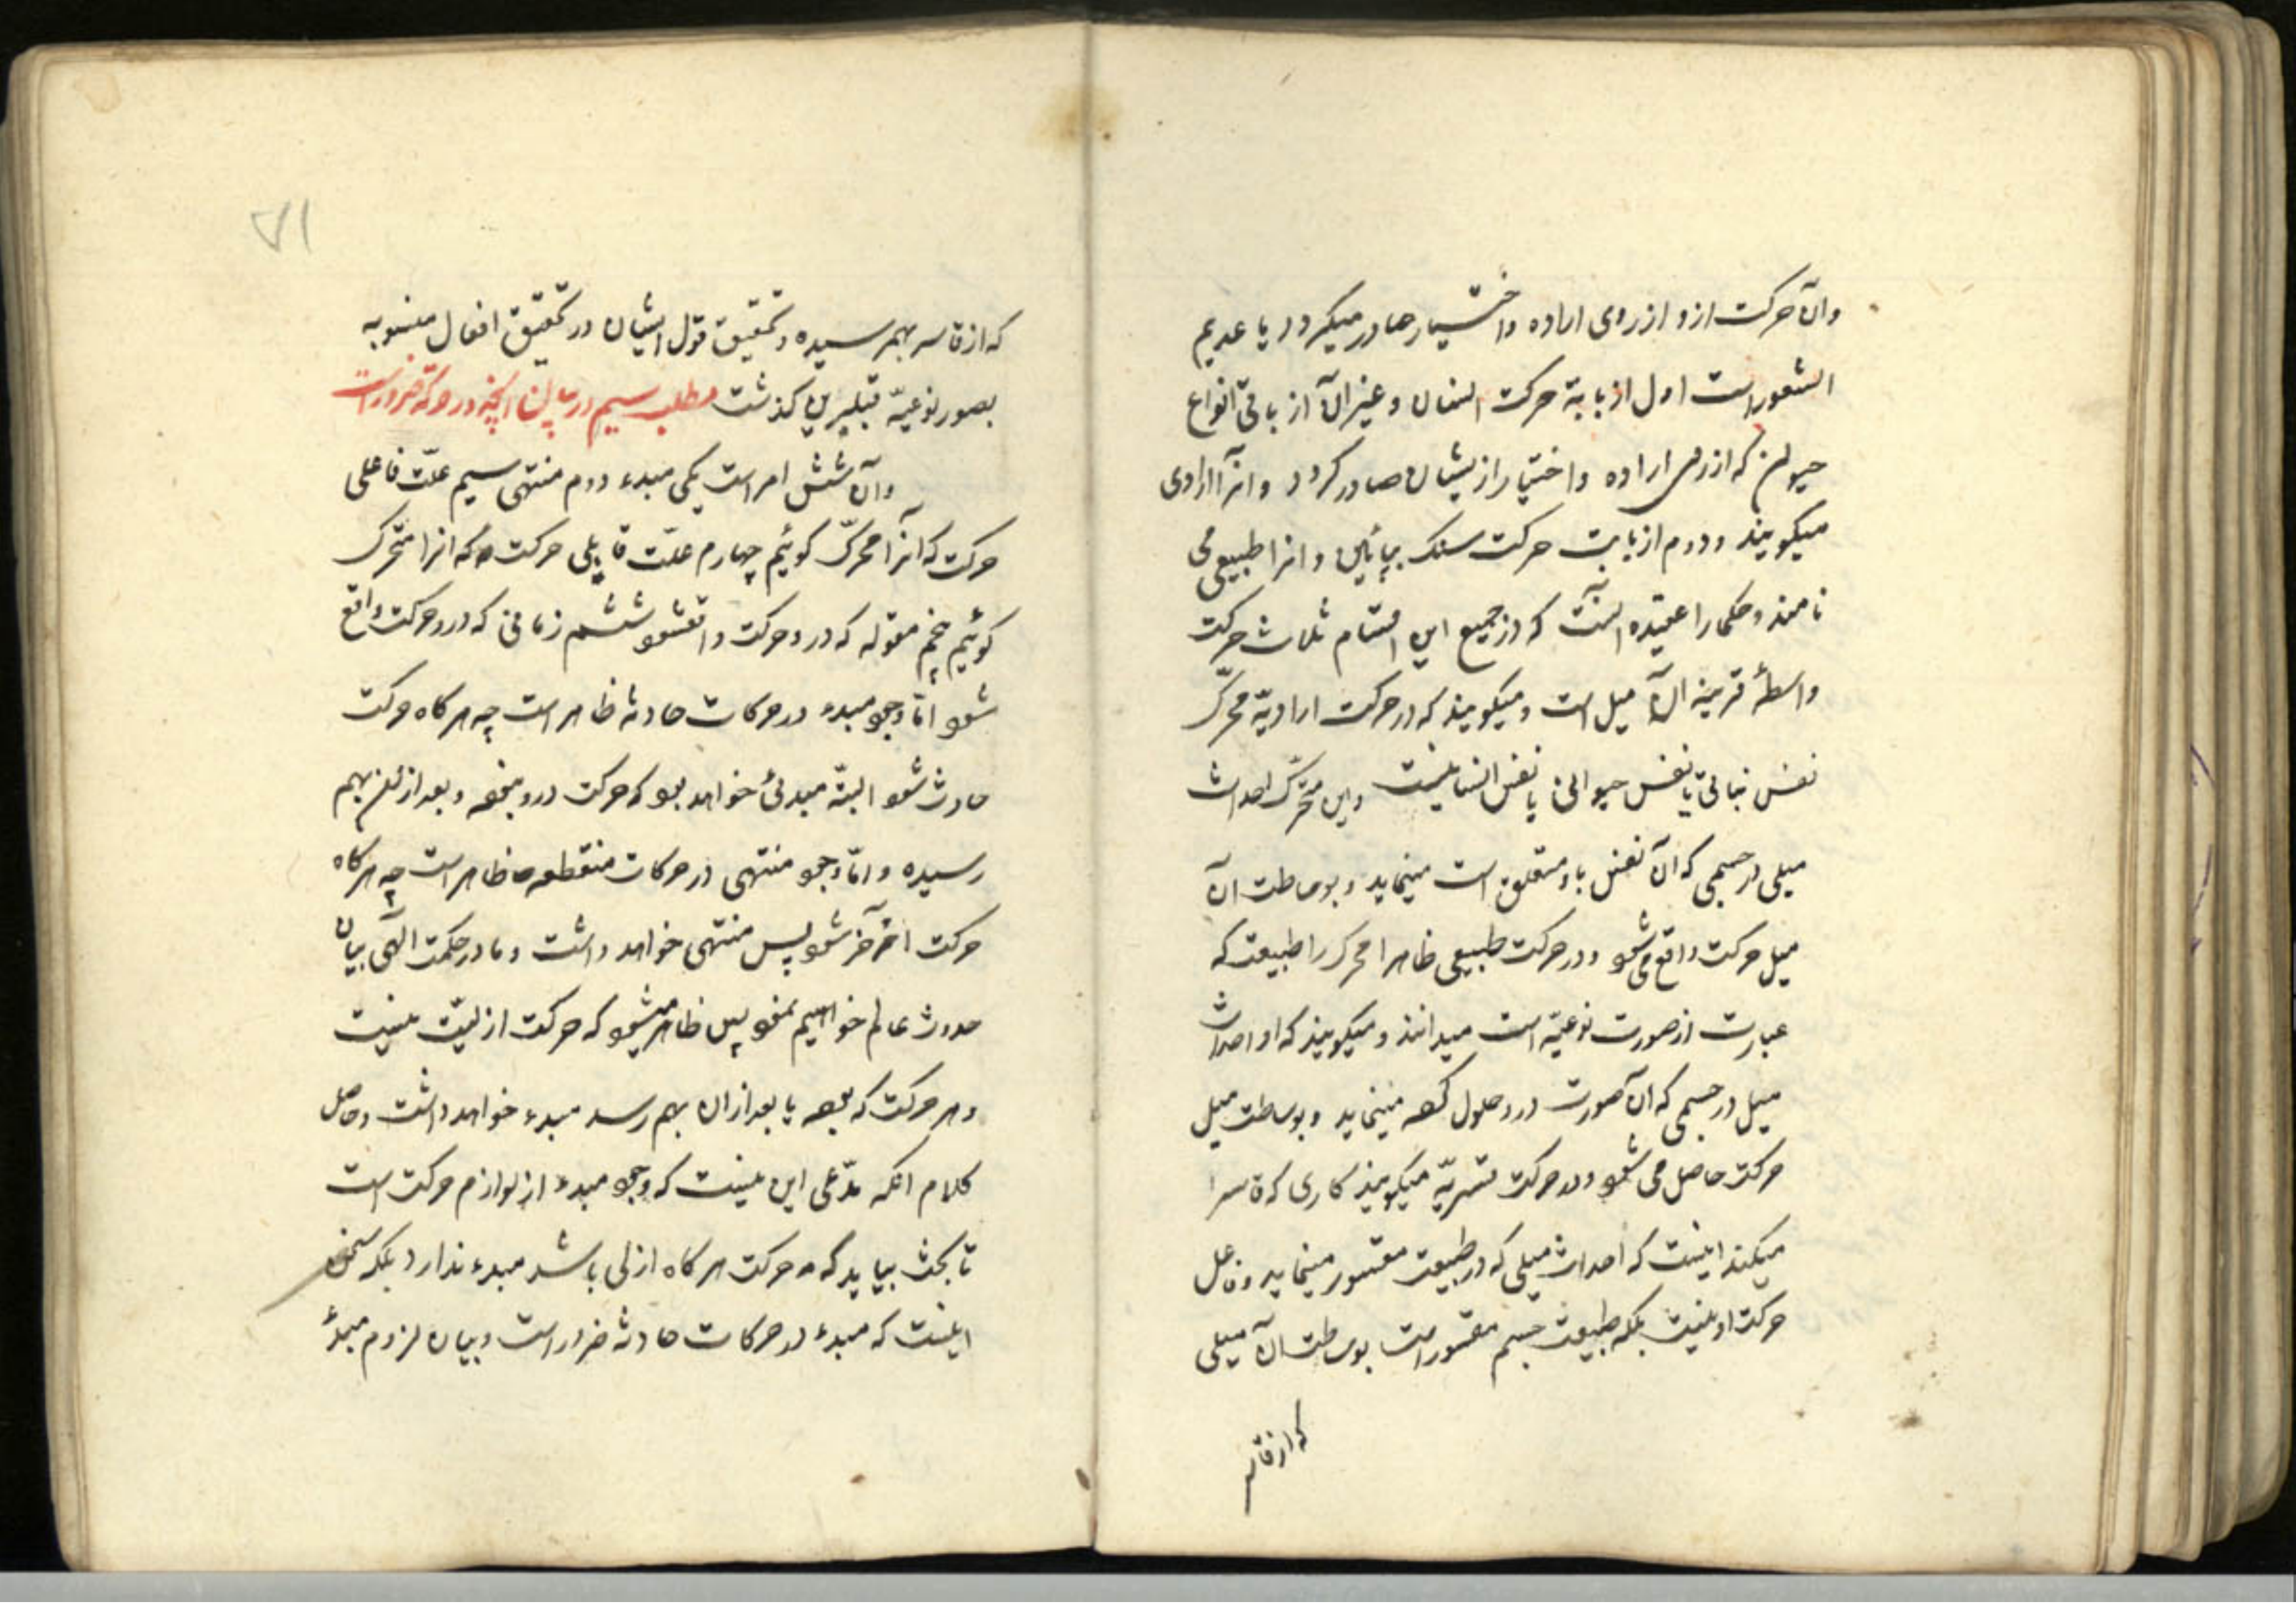 وآن حرکت ازو از روی اراده واختیار صادر میکردد یا عدیم
الشعور است اول از بابة حرکت انسان و غیر آن از باقی انواع
حیوان که از روی اراده واختیار از یشان صادر کردد و انرا ارادی
میکویند و دوم از بابت حرکت سنک بپائین و انرا طبیعی می
نامند و حکما را عقیده آنست که در جمیع این اقسام ثلاث حرکت
واسطهٔ قریبه آن میل است و میکویند که در حرکت ارادیّه محرّک
نفس نباتی یا نفس حیوانی یا نفس انسانیست و این محرّک احداث
میلی در جسمی که آن نفس باو متعلق است مینماید و بوساطت آن
میل حرکت واقع می شود و در حرکت طبیعی ظاهرا محرک را طبیعت که
عبارت از صورت نوعیّه است میدانند و میکویند که او احداث
میل در جسمی که آن صورت درو حلول کرده مینماید و بوساطت میل
حرکت حاصل می شود و در حرکت قسریّه میکویند کاری که قاسر
میکند اینست که احداث میلی که در طبیعت مقسور مینماید و فاعل
حرکت او نیست بلکه طبیعت جسم مقسور است بوساطت آن میلی
که از قاسر
۷۱
که از قاسر بهمرسیده و تحقیق قول ایشان در تحقیق افعال منسوبه
بصور نوعیّه قبل برین کذشت مطلب سیم در بیان آنچه در حرکة ضرور است
وآن شش امر است یکی مبدء دوم منتهی سیم علّت فاعلی
حرکت که آنرا محرّک کوئیم چهارم علّت قابلی حرکت که انرا متحرک
کوئیم پنجم مقوله که درو حرکت واقع شود ششم زمانی که درو حرکت واقع
شود امّا وجود مبدء در حرکات حادثه ظاهر است چه هر کاه حرکت
حادث شود البتّه مبدئی خواهد بود که حرکت درو نبوده و بعد از آن بهم
رسیده و امّا وجود منتهی در حرکات منقطعه ظاهر است چه هر کاه
حرکت آخر شود پس منتهی خواهد داشت و ما در حکمت الهی بیان
حدوث عالم خواهیم نمود پس ظاهر میشود که حرکت ازلیّت نیست
و هر حرکت که نبوده یا بعد از ان بهم رسد مبدء خواهد داشت و حاصل
کلام انکه مدّعی این نیست که وجود مبدء از لوازم حرکت است
تا بحث بیاید که حرکت هر کاه ازلی باشد مبدء ندارد بلکه سخن
اینست که مبدء در حرکات حادثه ضرور است و بیان لزوم مبدأ